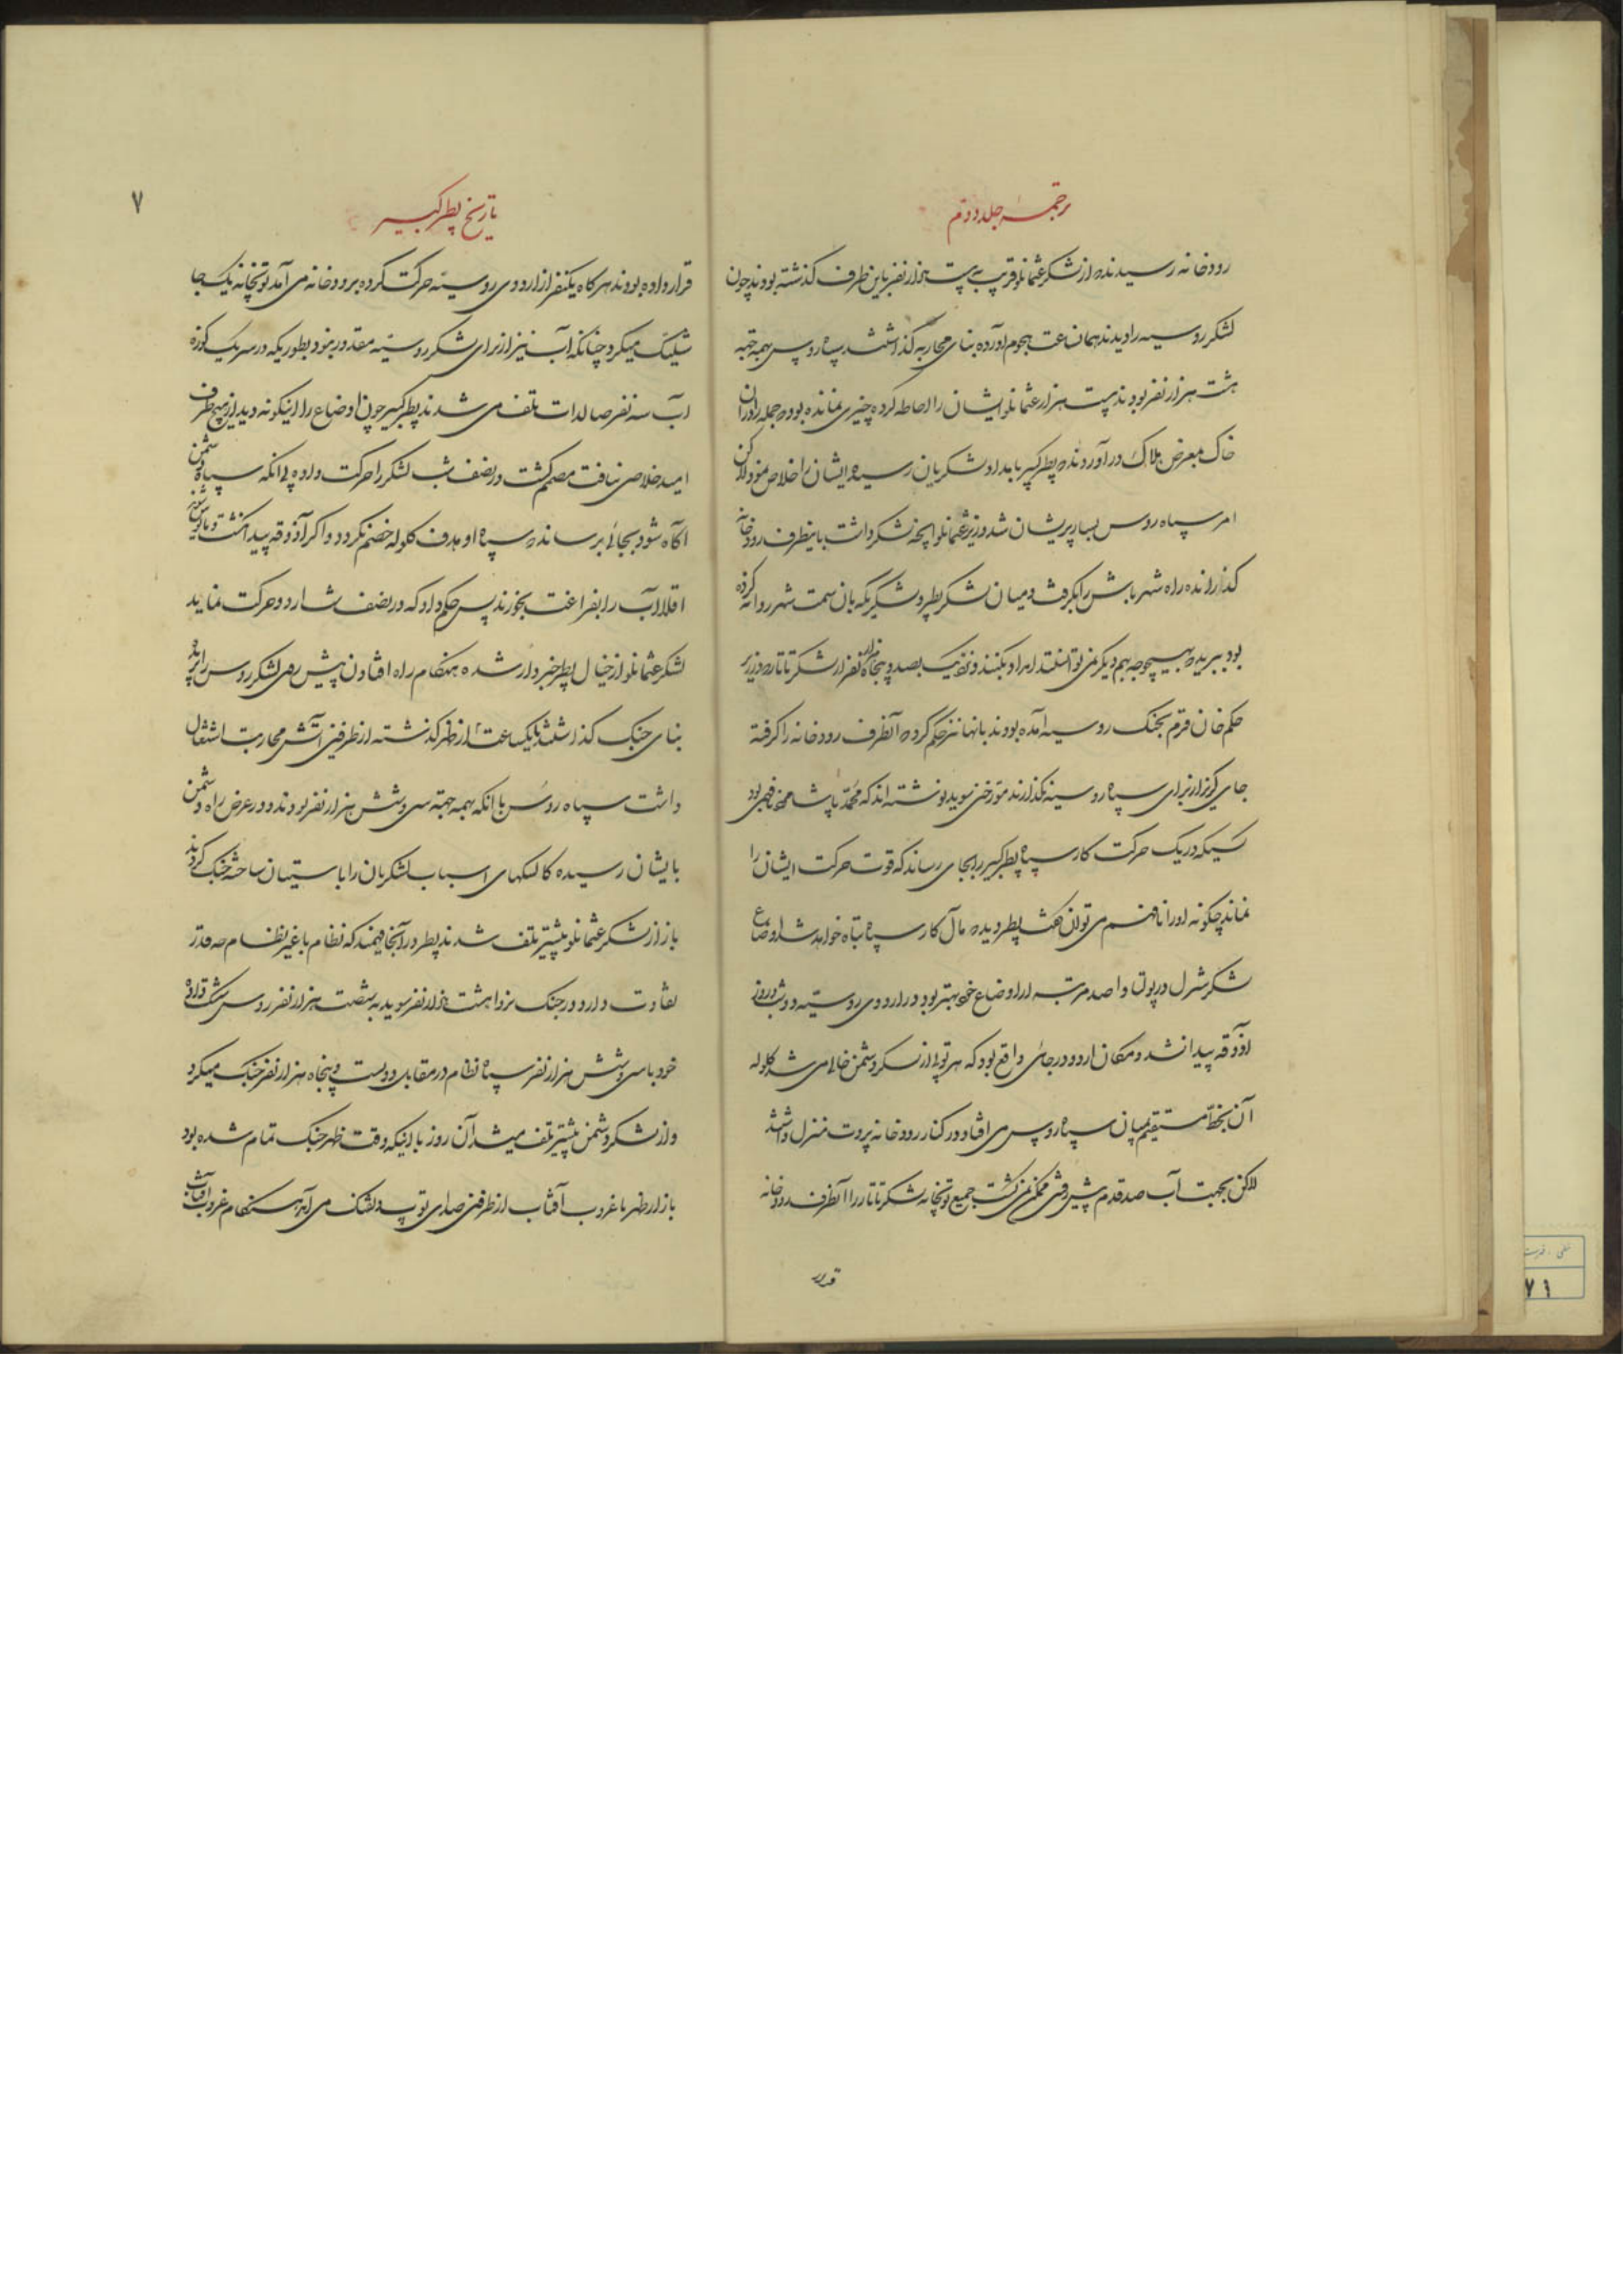 ترجمه جلد دویم
رودخانه رسیدند از لشکر عثمانلو قریب به بیست هزار نفر باین طرف گذشته بودند چون
لشکر روسیه را دیدند همان ساعت هجوم آورده بنای محاربه گذاشتند سپاه روس همه جهته
هشت هزار نفر بودند بیست هزار عثمانلو ایشان را احاطه کرده چیزی نمانده بود جمله را در آن
خاک بمعرض هلاک در آورند پطر کبیر بامداد لشکریان رسیده ایشان را خلاص نمود لاکن
امر سپاه روس بسیار پریشان شد وزیر عثمانلو آنچه لشکر داشت باینطرف رودخانه
گذرانده راه شهر یاش را بگرفت و میان لشکر پطر و لشکریکه بان سمت شهر روانه کرده
بود ببرید بهیچوجه بهم دیگر نمی توانستند امداد بکنند و نزدیک بصد و پنجاه هزار نفر از لشکر تاتار وزیر
حکم خان قرم بجنگ روسیه آمده بودند بانها نیز حکم کرد آنطرف رودخانه را گرفته
جای گریز از برای سپاه روسیه نگذارند مورخین سوید نوشته اند که محمد پاشا نافهم بود
کسیکه در یک حرکت کار سپاه پطر کبیر را بجای رساند که قوت حرکت ایشان را
نماند چگونه او را نافهم می توان گفت پطر دید مآل کار سپاه تباه خواهد شد اوضاع
لشکر شرل در پولتاوا صد مرتبه از اوضاع خود بهتر بود در اردوی روسیه دو شب و روز
آذوقه پیدا نشد و مکان اردو در جائی واقع بود که هر توپی از لشکر دشمن خالی می شد گلوله
آن بخط مستقیم بمیان سپاه روس می افتاد و در کنار رودخانه پروت منزل داشتند
لاکن بجهت آب صد قدم پیش رفتن ممکن نمی گشت جمیع توپخانه لشکر تاتار را آنطرف رودخانه
قرار
تاریخ پطر کبیر
۷
قرار داده بودند هر گاه یکنفر از اردوی روسیه حرکت کرده برودخانه می آمد توپخانه یک جا
شلیک میکرد چنانکه آب نیز از برای لشکر روسیه مقدور نبود بطوریکه در سر یک کوزه
آب سه نفر صالدات تلف می شدند پطر کبیر چون اوضاع را اینگونه دید از هیچ طرف
امید خلاصی نیافت مصمم گشت در نصف شب لشکر را حرکت داده بی آنکه سپاه دشمن
آگاه شود بجائی برساند سپاه او هدف گلوله خصم نگردد و اگر آذوقه پیدا نگشت
اقلا آب را بفراغت بخورند پس حکم داد که در نصف شب اردو حرکت نماید
لشکر عثمانلو از خیال پطر خبردار شده هنگام راه افتادن پیش روی لشکر روس را بریده
بنای جنگ گذاشتند تا یکساعت از ظهر گذشته از طرفین آتش محاربت اشتعال
داشت سپاه روس با آنکه همه جهته سی و شش هزار نفر بودند و در عرض راه دشمن
بایشان رسیده کالسکهای اسباب لشکریان را با سیبهان ساخته جنگ کردند
باز از لشکر عثمانلو بیشتر تلف شدند پطر در آنجا فهمید که نظام با غیر نظام چه قدر
تفاوت دارد در جنگ نروا هشت هزار نفر سوید به شصت هزار نفر روس شکست داده
خود با سی و شش هزار نفر سپاه نظام در مقابل دویست و پنجاه هزار نفر جنگ میکرد
و از لشکر دشمن بیشتر تلف میشد آن روز با اینکه وقت ظهر جنگ تمام شده بود
باز از ظهر تا غروب آفتاب از طرفین صدای توپ و تفنگ می آمد هنگام غروب آفتاب
۷۱